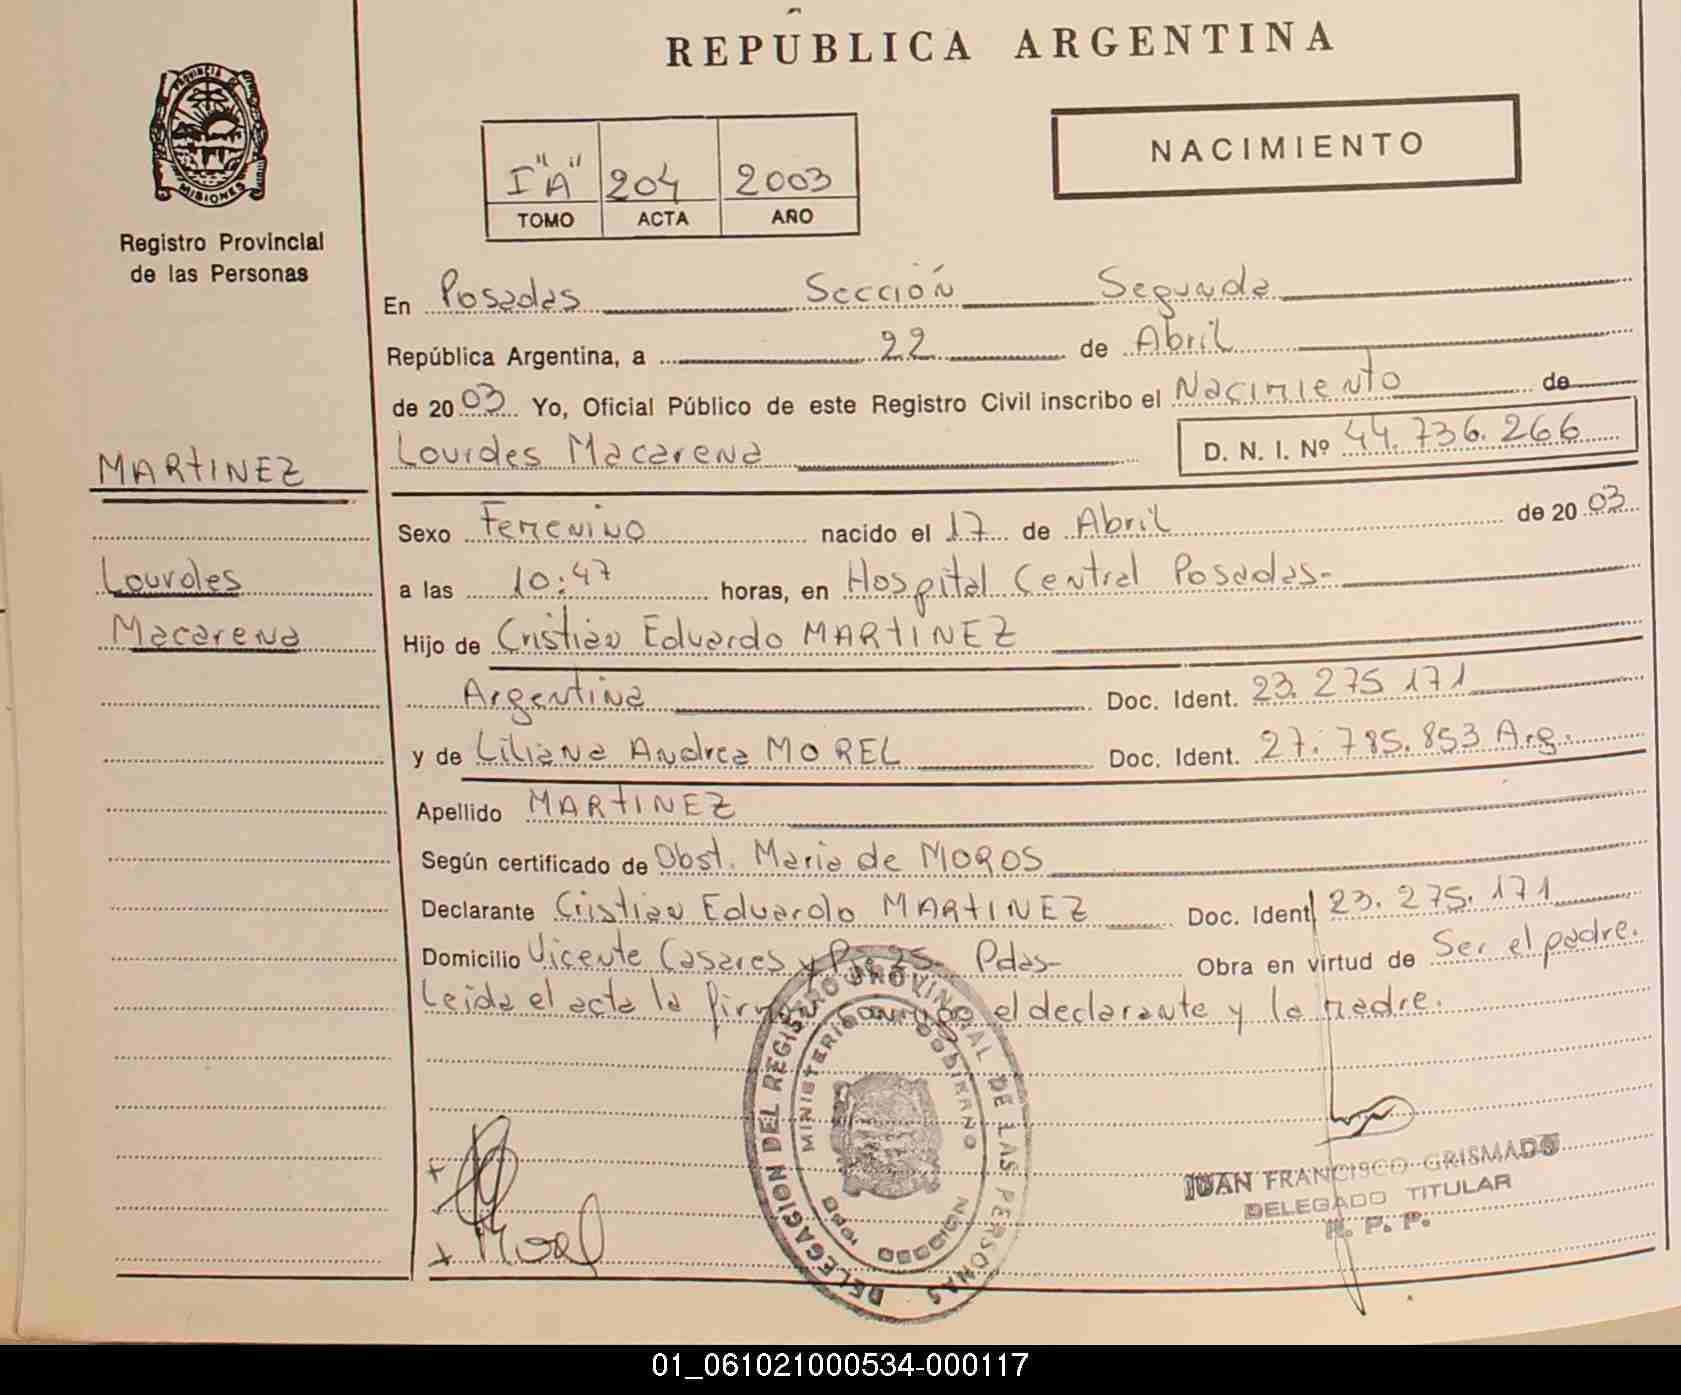 REPUBLICA ARGENTINA
PROVINCIA DE
MISIONES
Registro Provincial
de las Personas
I "A" 204 2003
TOMO ACTA AÑO
NACIMIENTO
En Posadas Sección Segunda
República Argentina, a 22 de Abril
de 2003 Yo, Oficial Público de este Registro Civil inscribo el Nacimiento de
Lourdes Macarena D. N. I. Nº 44.736.266
MARTINEZ
Lourdes
Macarena
Sexo Femenino nacido el 17 de Abril de 2003
a las 10:47 horas, en Hospital Central Posadas-
Hijo de Cristian Eduardo MARTINEZ
Argentina Doc. Ident. 23.275.171
y de Liliana Andrea MOREL Doc. Ident. 27.785.853 Arg.
Apellido MARTINEZ
Según certificado de Obst. Maria de MOROS
Declarante Cristian Eduardo MARTINEZ Doc. Ident 23.275.171
Domicilio Vicente Casares y 25- Pdas- Obra en virtud de Ser el padre.
Leida el acta la firman conmigo el declarante y la madre.
DELEGACION DEL REGISTRO PROVINCIAL DE LAS PERSONAS
MINISTERIO DE GOBIERNO
Morel
JUAN FRANCISCO GRISMADO
DELEGADO TITULAR
R. P. P.
01_061021000534-000117